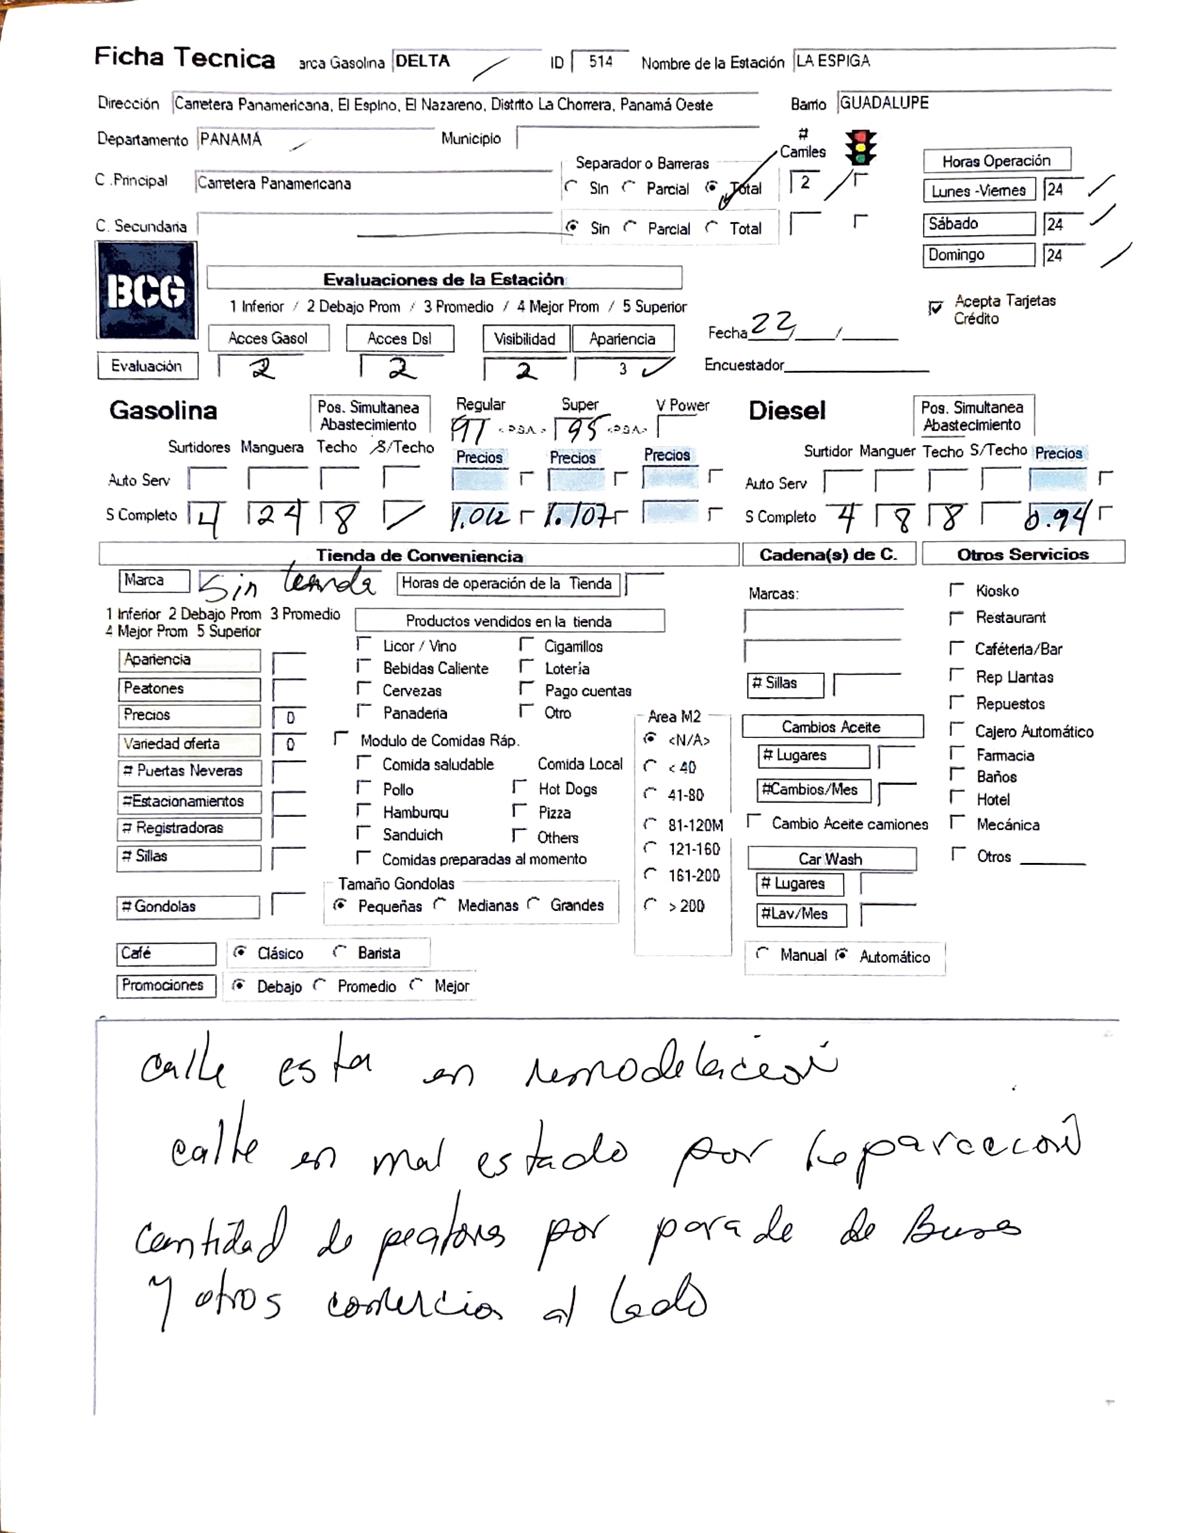 Ficha Tecnica arca Gasolina DELTA ID 514 Nombre de la Estación LA ESPIGA
Dirección Carretera Panamericana, El Espino, El Nazareno, Distrito La Chorrera, Panamá Oeste Barrio GUADALUPE
Departamento PANAMÁ Municipio # Carriles
C .Principal Carretera Panamericana Separador o Barreras Sin Parcial Total 2 Horas Operación
Lunes -Viernes 24
C. Secundaria Sin Parcial Total Sábado 24
Domingo 24
BCG
Evaluaciones de la Estación
1 Inferior / 2 Debajo Prom / 3 Promedio / 4 Mejor Prom / 5 Superior
Acepta Tarjetas Crédito
Acces Gasol Acces Dsl Visibilidad Apariencia Fecha 22/ /
Evaluación 2 2 2 3 Encuestador
Gasolina Pos. Simultanea Abastecimiento Regular Super V Power Diesel Pos. Simultanea Abastecimiento
91 95
Surtidores Manguera Techo S/Techo Precios Precios Precios Surtidor Manguer Techo S/Techo Precios
Auto Serv Auto Serv
S Completo 4 24 8 1.107 S Completo 4 8 8 0.94
Tienda de Conveniencia Cadena(s) de C. Otros Servicios
Marca Sin tienda Horas de operación de la Tienda Marcas: Kiosko
1 Inferior 2 Debajo Prom 3 Promedio Productos vendidos en la tienda Restaurant
4 Mejor Prom 5 Superior
Licor / Vino Cigarrillos Cafétería/Bar
Apariencia Bebidas Caliente Lotería
Peatones Cervezas Pago cuentas # Sillas Rep Llantas
Precios 0 Panaderia Otro Area M2 Repuestos
Variedad oferta 0 Modulo de Comidas Ráp. <N/A> Cambios Aceite Cajero Automático
# Puertas Neveras Comida saludable Comida Local < 40 # Lugares Farmacia
Baños
#Estacionamientos Pollo Hot Dogs 41-80 #Cambios/Mes Hotel
# Registradoras Hamburqu Pizza 81-120M Cambio Aceite camiones Mecánica
Sanduich Others 121-160
# Sillas Comidas preparadas al momento Car Wash Otros
Tamaño Gondolas 161-200 # Lugares
# Gondolas Pequeñas Medianas Grandes > 200 #Lav/Mes
Café Clásico Barista Manual Automático
Promociones Debajo Promedio Mejor
calle esta en remodelación
calle en mal estado por reparación
cantidad de peatones por parada de Buses
y otros comercios al lado